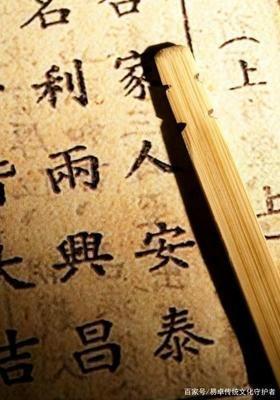 (上
上
合家人安泰
名利兩興昌
皆大吉
百家号/易卓传统文化守护者